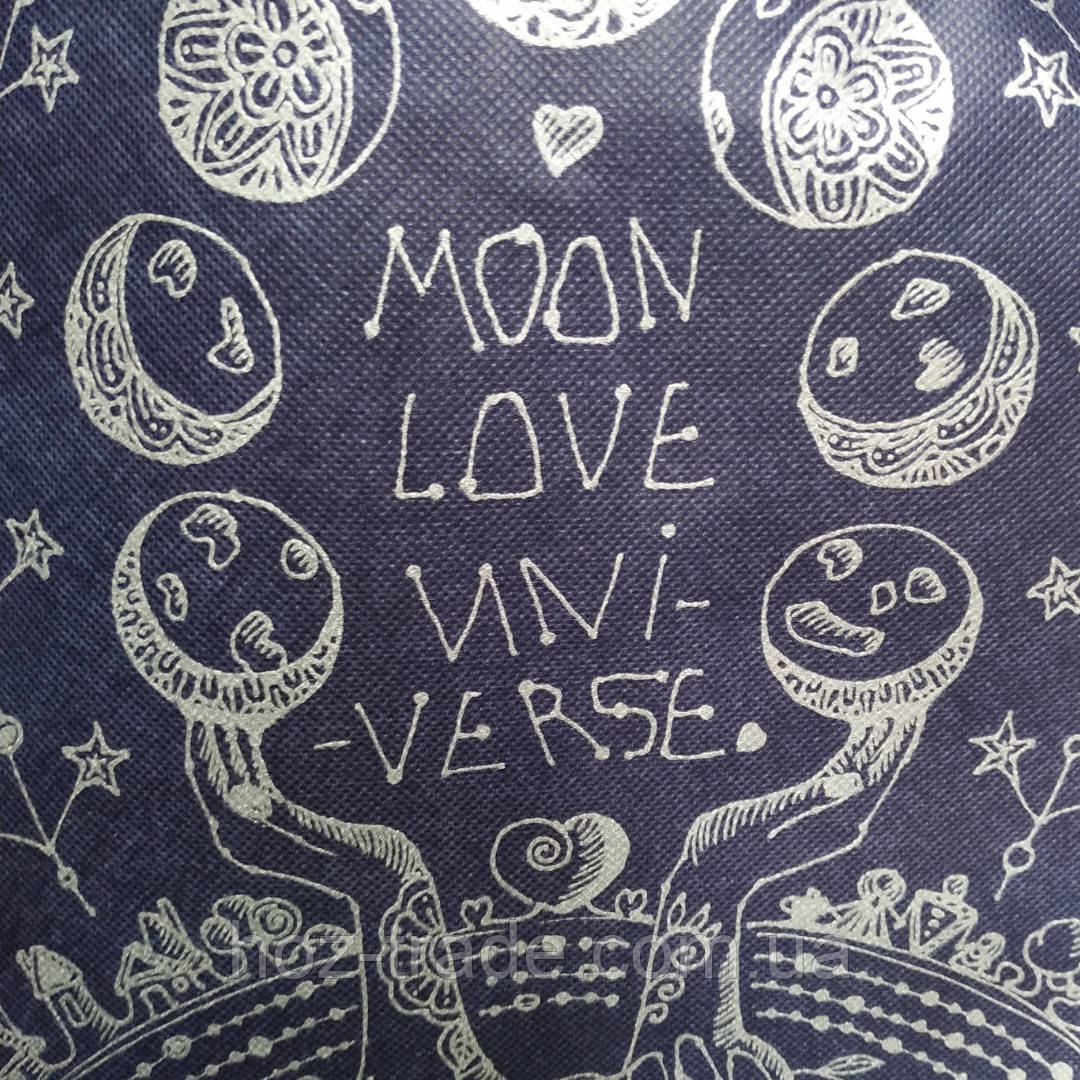 MOON
LOVE
UNI-
-VERSE.
hoz-trade.com.ua